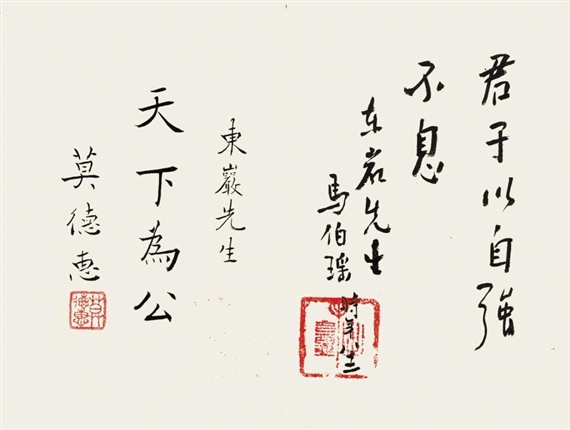 君子以自強
不息
东岩先生
馬伯瑶 時年
東巖先生
天下為公
莫德惠
莫德惠